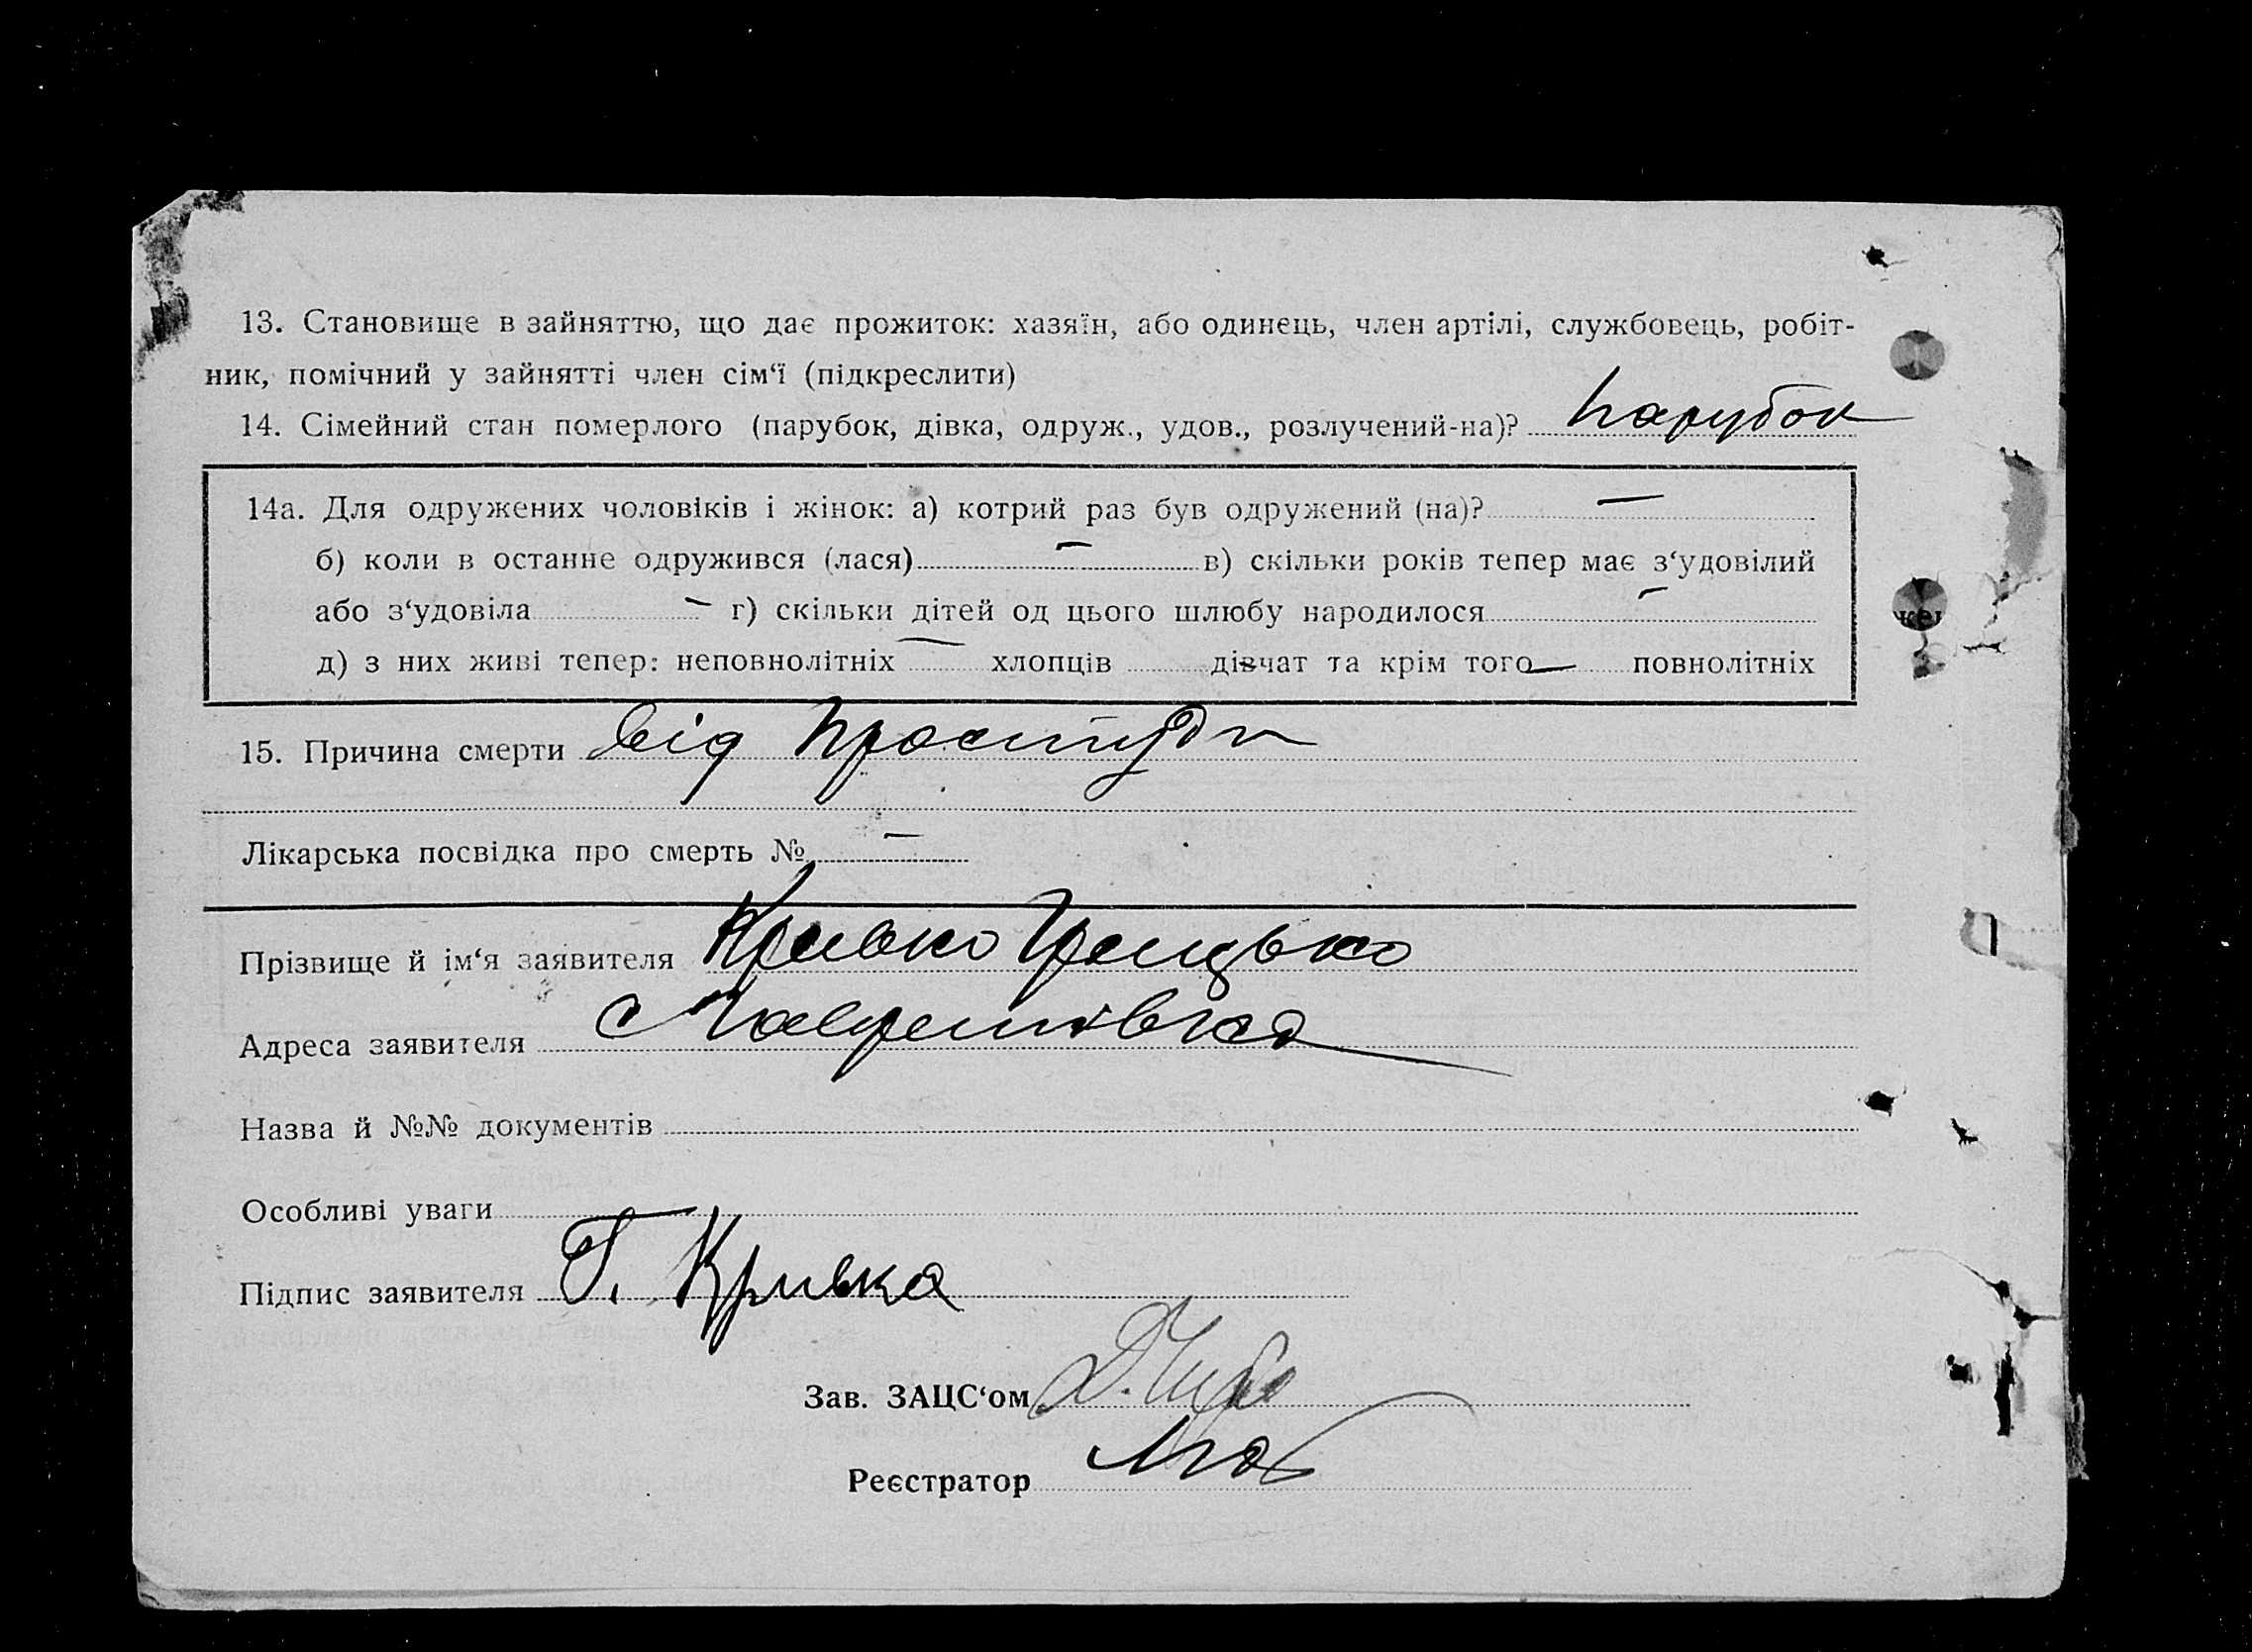 13. Становище в зайняттю, що дає прожиток: хазяїн, або одинець, член артілі, службовець, робіт-
ник, помічний у зайнятті член сім‘ї (підкреслити)
14. Сімейний стан померлого (парубок, дівка, одруж., удов., розлучений-на)? парубок
14а. Для одружених чоловіків і жінок: а) котрий раз був одружений (на)? —
б) коли в останне одружився (лася) — в) скільки років тепер має з‘удовілий
або з‘удовіла — г) скільки дітей од цього шлюбу народилося —
д) з них живі тепер: неповнолітніх — хлопців дівчат та крім того — повнолітніх
15. Причина смерти від простуди
Лікарська посвідка про смерть № —
Прізвище й ім‘я заявителя Кривко Грицько
Адреса заявителя с
Назва й №№ документів
Особливі уваги
Підпис заявителя Г. Кривка
Зав. ЗАЦС‘ом
Реєстратор